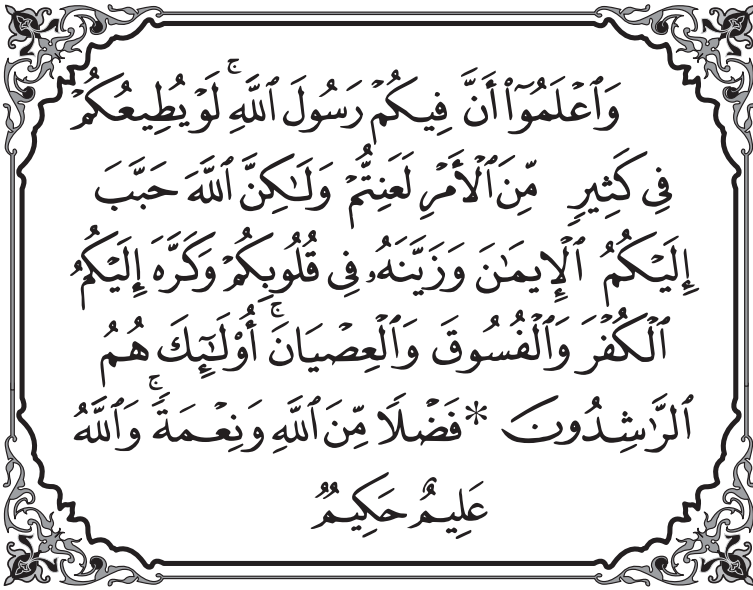 وَٱعْلَمُوٓا۟ أَنَّ فِيكُمْ رَسُولَ ٱللَّهِ ۚ لَوْ يُطِيعُكُمْ
فِى كَثِيرٍ مِّنَ ٱلْأَمْرِ لَعَنِتُّمْ وَلَٰكِنَّ ٱللَّهَ حَبَّبَ
إِلَيْكُمُ ٱلْإِيمَٰنَ وَزَيَّنَهُۥ فِى قُلُوبِكُمْ وَكَرَّهَ إِلَيْكُمُ
ٱلْكُفْرَ وَٱلْفُسُوقَ وَٱلْعِصْيَانَ ۚ أُو۟لَٰٓئِكَ هُمُ
ٱلرَّٰشِدُونَ * فَضْلًا مِّنَ ٱللَّهِ وَنِعْمَةً ۚ وَٱللَّهُ
عَلِيمٌ حَكِيمٌ